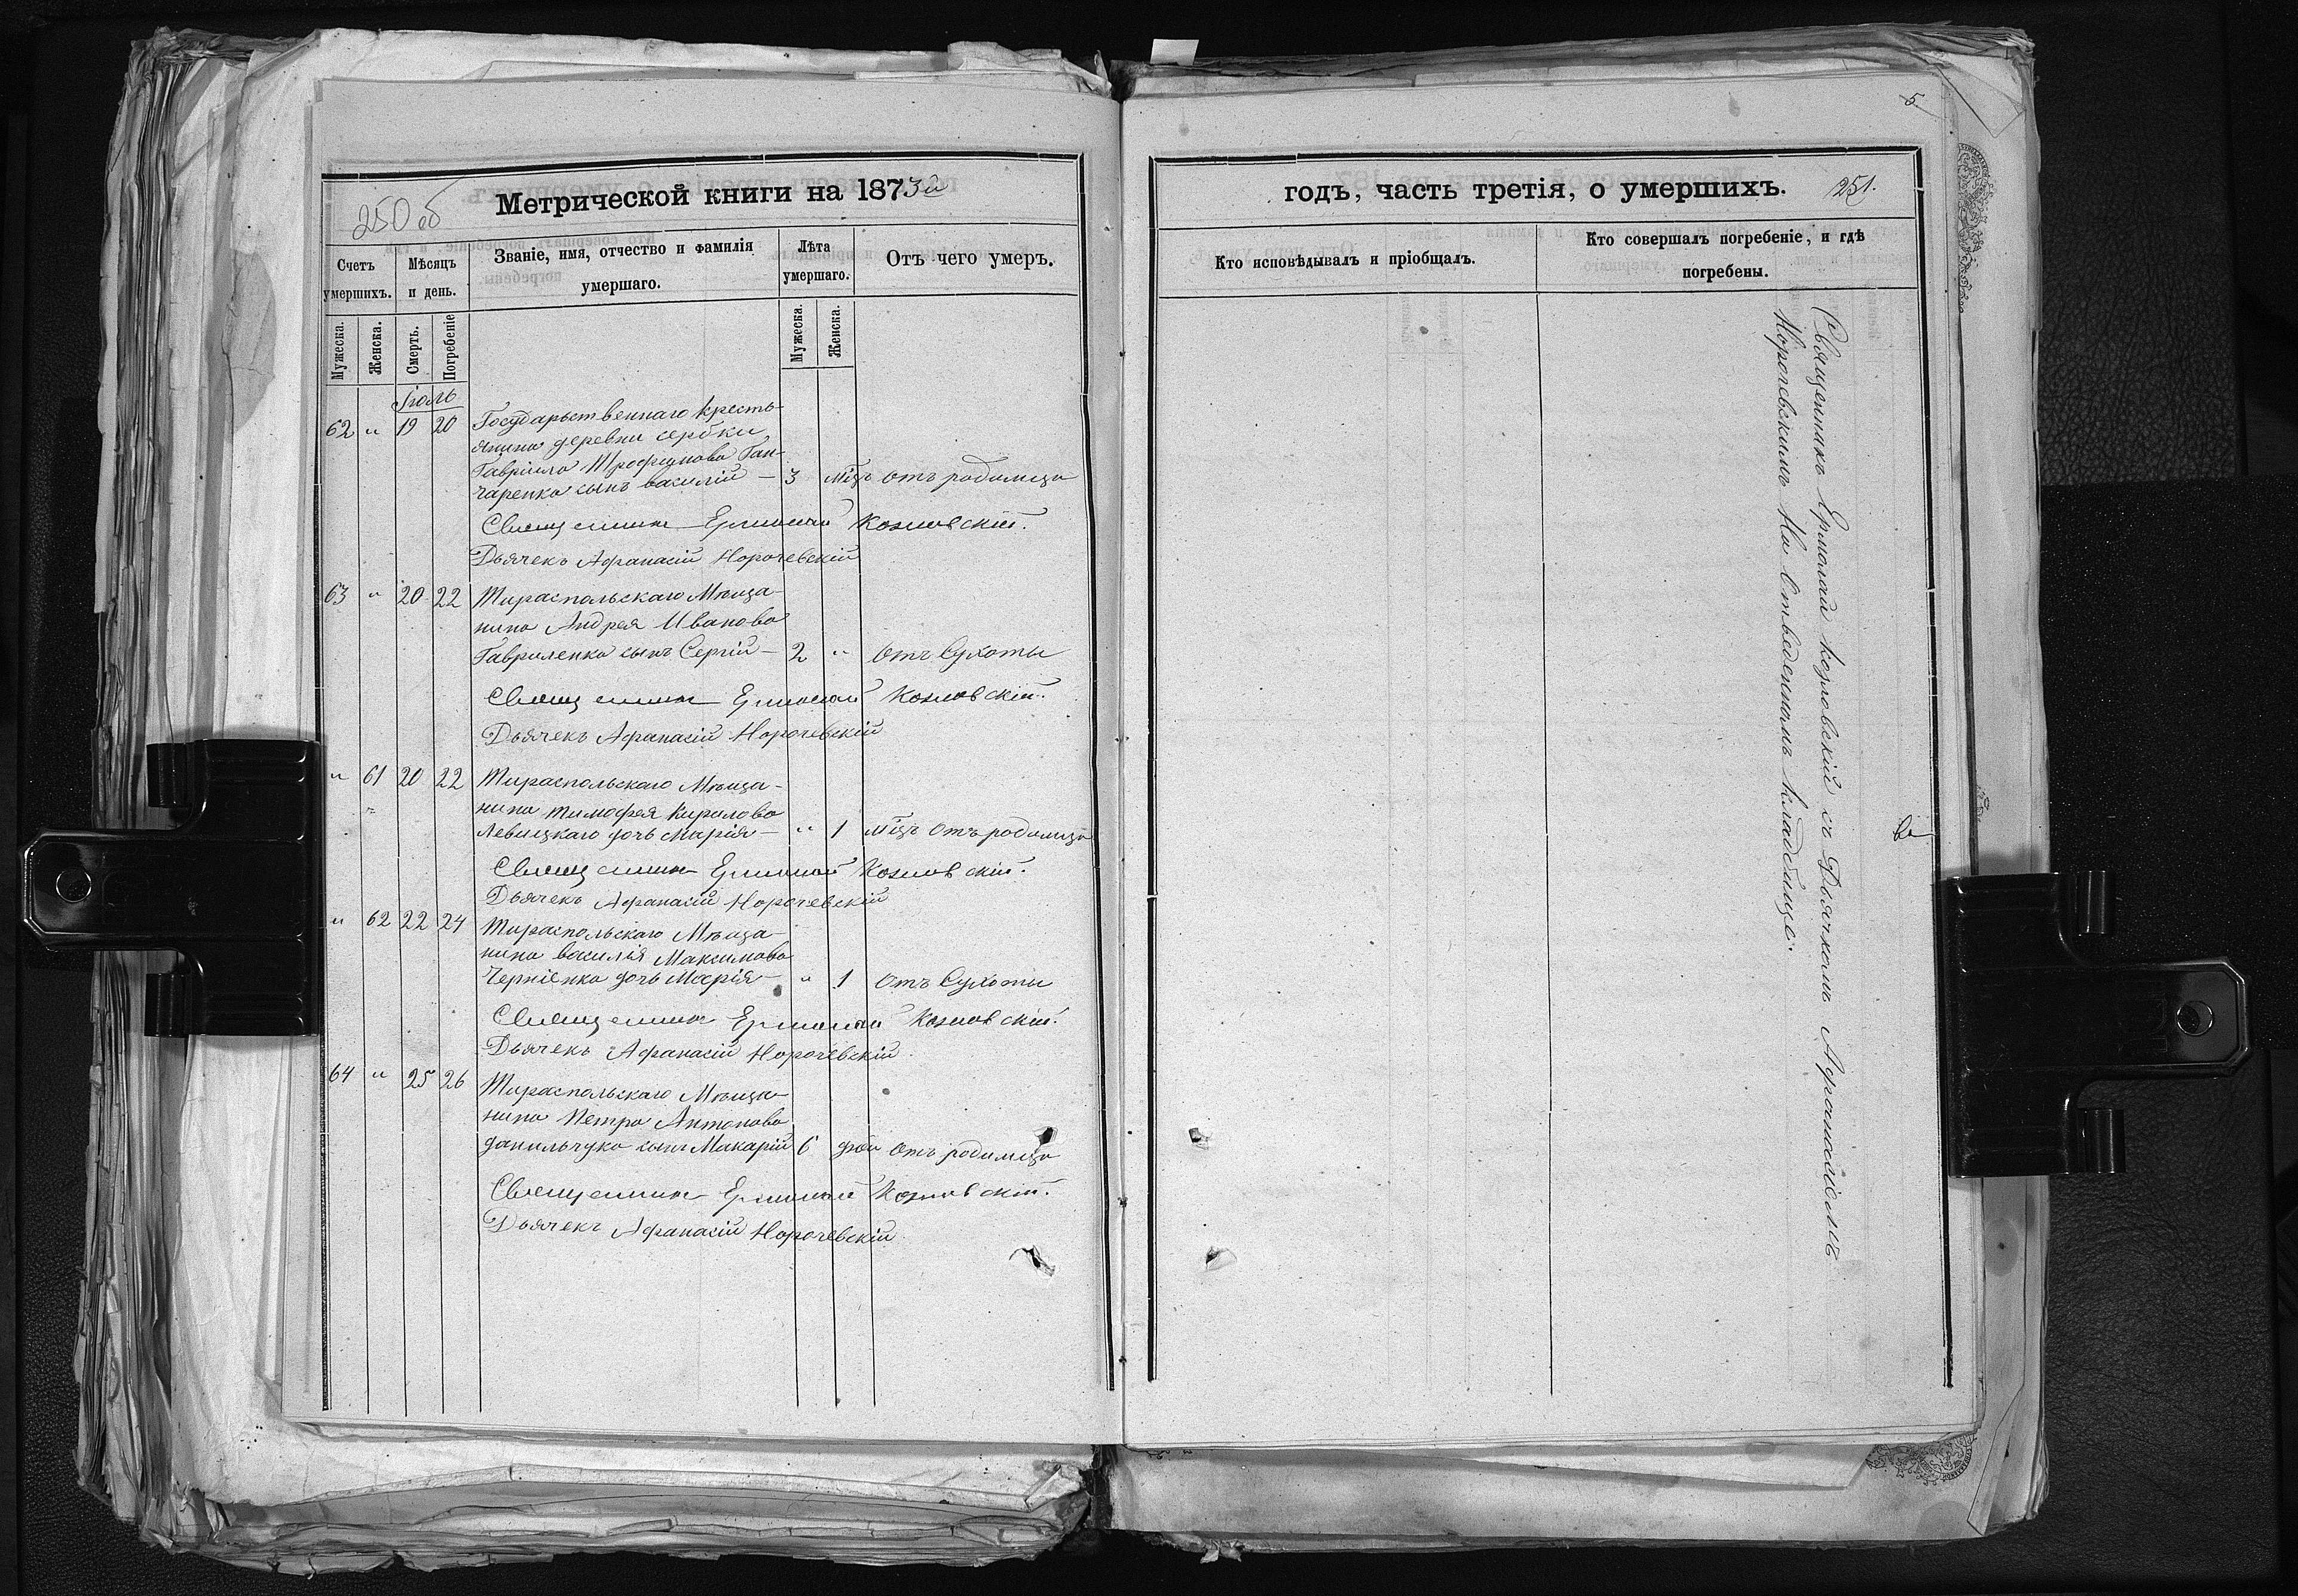 250 об
Метрической книги на 1873й
Счетъ умершихъ.
Мѣсяцъ и день.
Званіе, имя, отчество и фамилія умершаго.
Лѣта умершаго.
Отъ чего умеръ.
Мужеска.
Женска.
Смерть.
Погребеніе
Мужеска.
Женска.
Іюль
62 " 19 20 Государственнаго кресть-
янина деревни сербки
Гавріила Трофимова Ган-
чаренка сынъ василій — 3 мцъ отъ родимца
Священникъ Ермолай Козловскій.
Дьячекъ Афанасій Норочевскій
63 " 20 22 Тираспольскаго Мѣща-
нина Андрея Иванова
Гавриленка сынъ Сергій — 2 " отъ Сухоты
Священникъ Ермолай Козловскій.
Дьячекъ Афанасій Норочевскій
" 61 20 22 Тираспольскаго Мѣща-
нина тимофея Кирилова
Левицкаго дочь Марія — " 1 мцъ отъ родимца
Священникъ Ермолай Козловскій.
Дьячекъ Афанасій Норочевскій
" 62 22 24 Тираспольскаго Мѣща-
нина василія Максимова
Чернієнка дочь Марія — " 1 отъ Сухоты
Священникъ Ермолай Козловскій.
Дьячекъ Афанасій Норочевскій
64 " 25 26 Тираспольскаго Мѣща-
нина Петра Антонова
данильчука сынъ Макарій 6 отъ родимца
Священникъ Ермолай Козловскій.
Дьячекъ Афанасій Норочевскій
5
годъ, часть третія, о умершихъ. 251.
Кто исповѣдывалъ и пріобщалъ.
Кто совершалъ погребеніе, и гдѣ
погребены.
Священникъ Ермолай козловскій съ Дьячкомъ Афанасіемъ
Норочевскимъ На Отведенномъ кладбище.